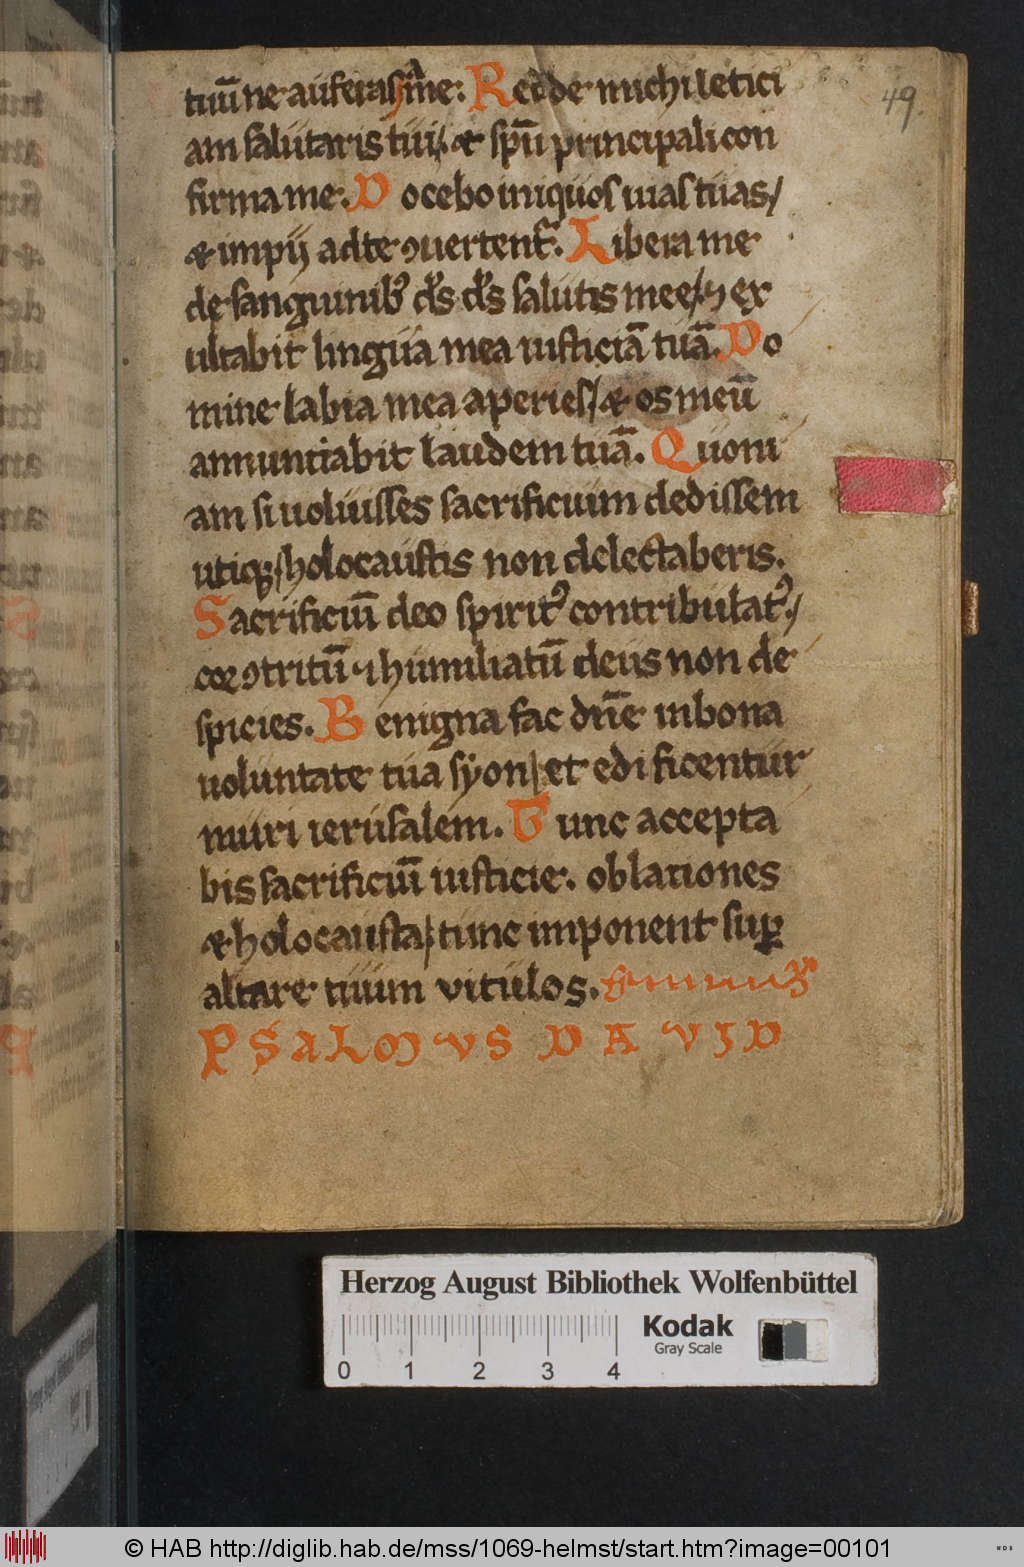 tuū ne auferas a me: Redde michi letici
am salutaris tui / & spū principali con
firma me. Docebo iniquos uias tuas /
& impij ad te ꝯuertentᷣ. Libera me
de sanguinibꝰ ds ds salutis mee / ⁊ ex
ultabit lingua mea iusticiā tuā. Do
mine labia mea aperies / & os meū
annuntiabit laudem tuā. Quoni
am si uoluisses sacrificium dedissem
utiqꝫ / holocaustis non delectaberis.
Sacrificiū deo spiritꝰ contribulatꝰ /
coꝛ ꝯtritū ⁊ humiliatū deus non de
spicies. Benigna fac dn̄e in bona
uoluntate tua syon / et edificentur
muri ierusalem. Tunc accepta
bis sacrificiū iusticie. oblationes
& holocausta / tunc imponent suꝑ
altare tuum vitulos.
PSALMVS DAVID
49.
Herzog August Bibliothek Wolfenbüttel
0 1 2 3 4
Kodak
Gray Scale
© HAB http://diglib.hab.de/mss/1069-helmst/start.htm?image=00101